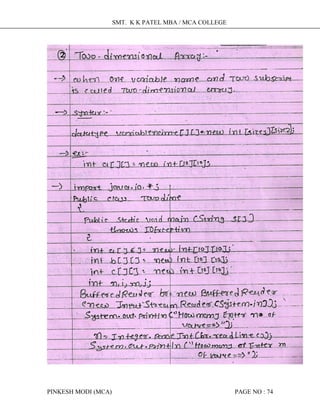 SMT. K K PATEL MBA / MCA COLLEGE
② Two-dimensional Array:-
→ when one variable name and Two subscript
is called Two-dimensional array.
→ syntax:-
datatype variablename[][]=new int[size][size];
→ ex:-
int a[][]=new int[10][10];
→ import java.io.*;
Public class Twodime
{
Public static void main (String s[])
throws IOException
{
int a[][]=new int[10][10];
int b[][]=new int[10][10];
int c[][]=new int[10][10];
int n,i,m,j;
BufferedReader br=new BufferedReader
(new InputStreamReader(System.in));
System.out.println("How many Enter no of
value=>");
n=Integer.parseInt(br.readLine());
System.out.println("How many of Enter m
of value=>");
PINKESH MODI (MCA)
PAGE NO : 74